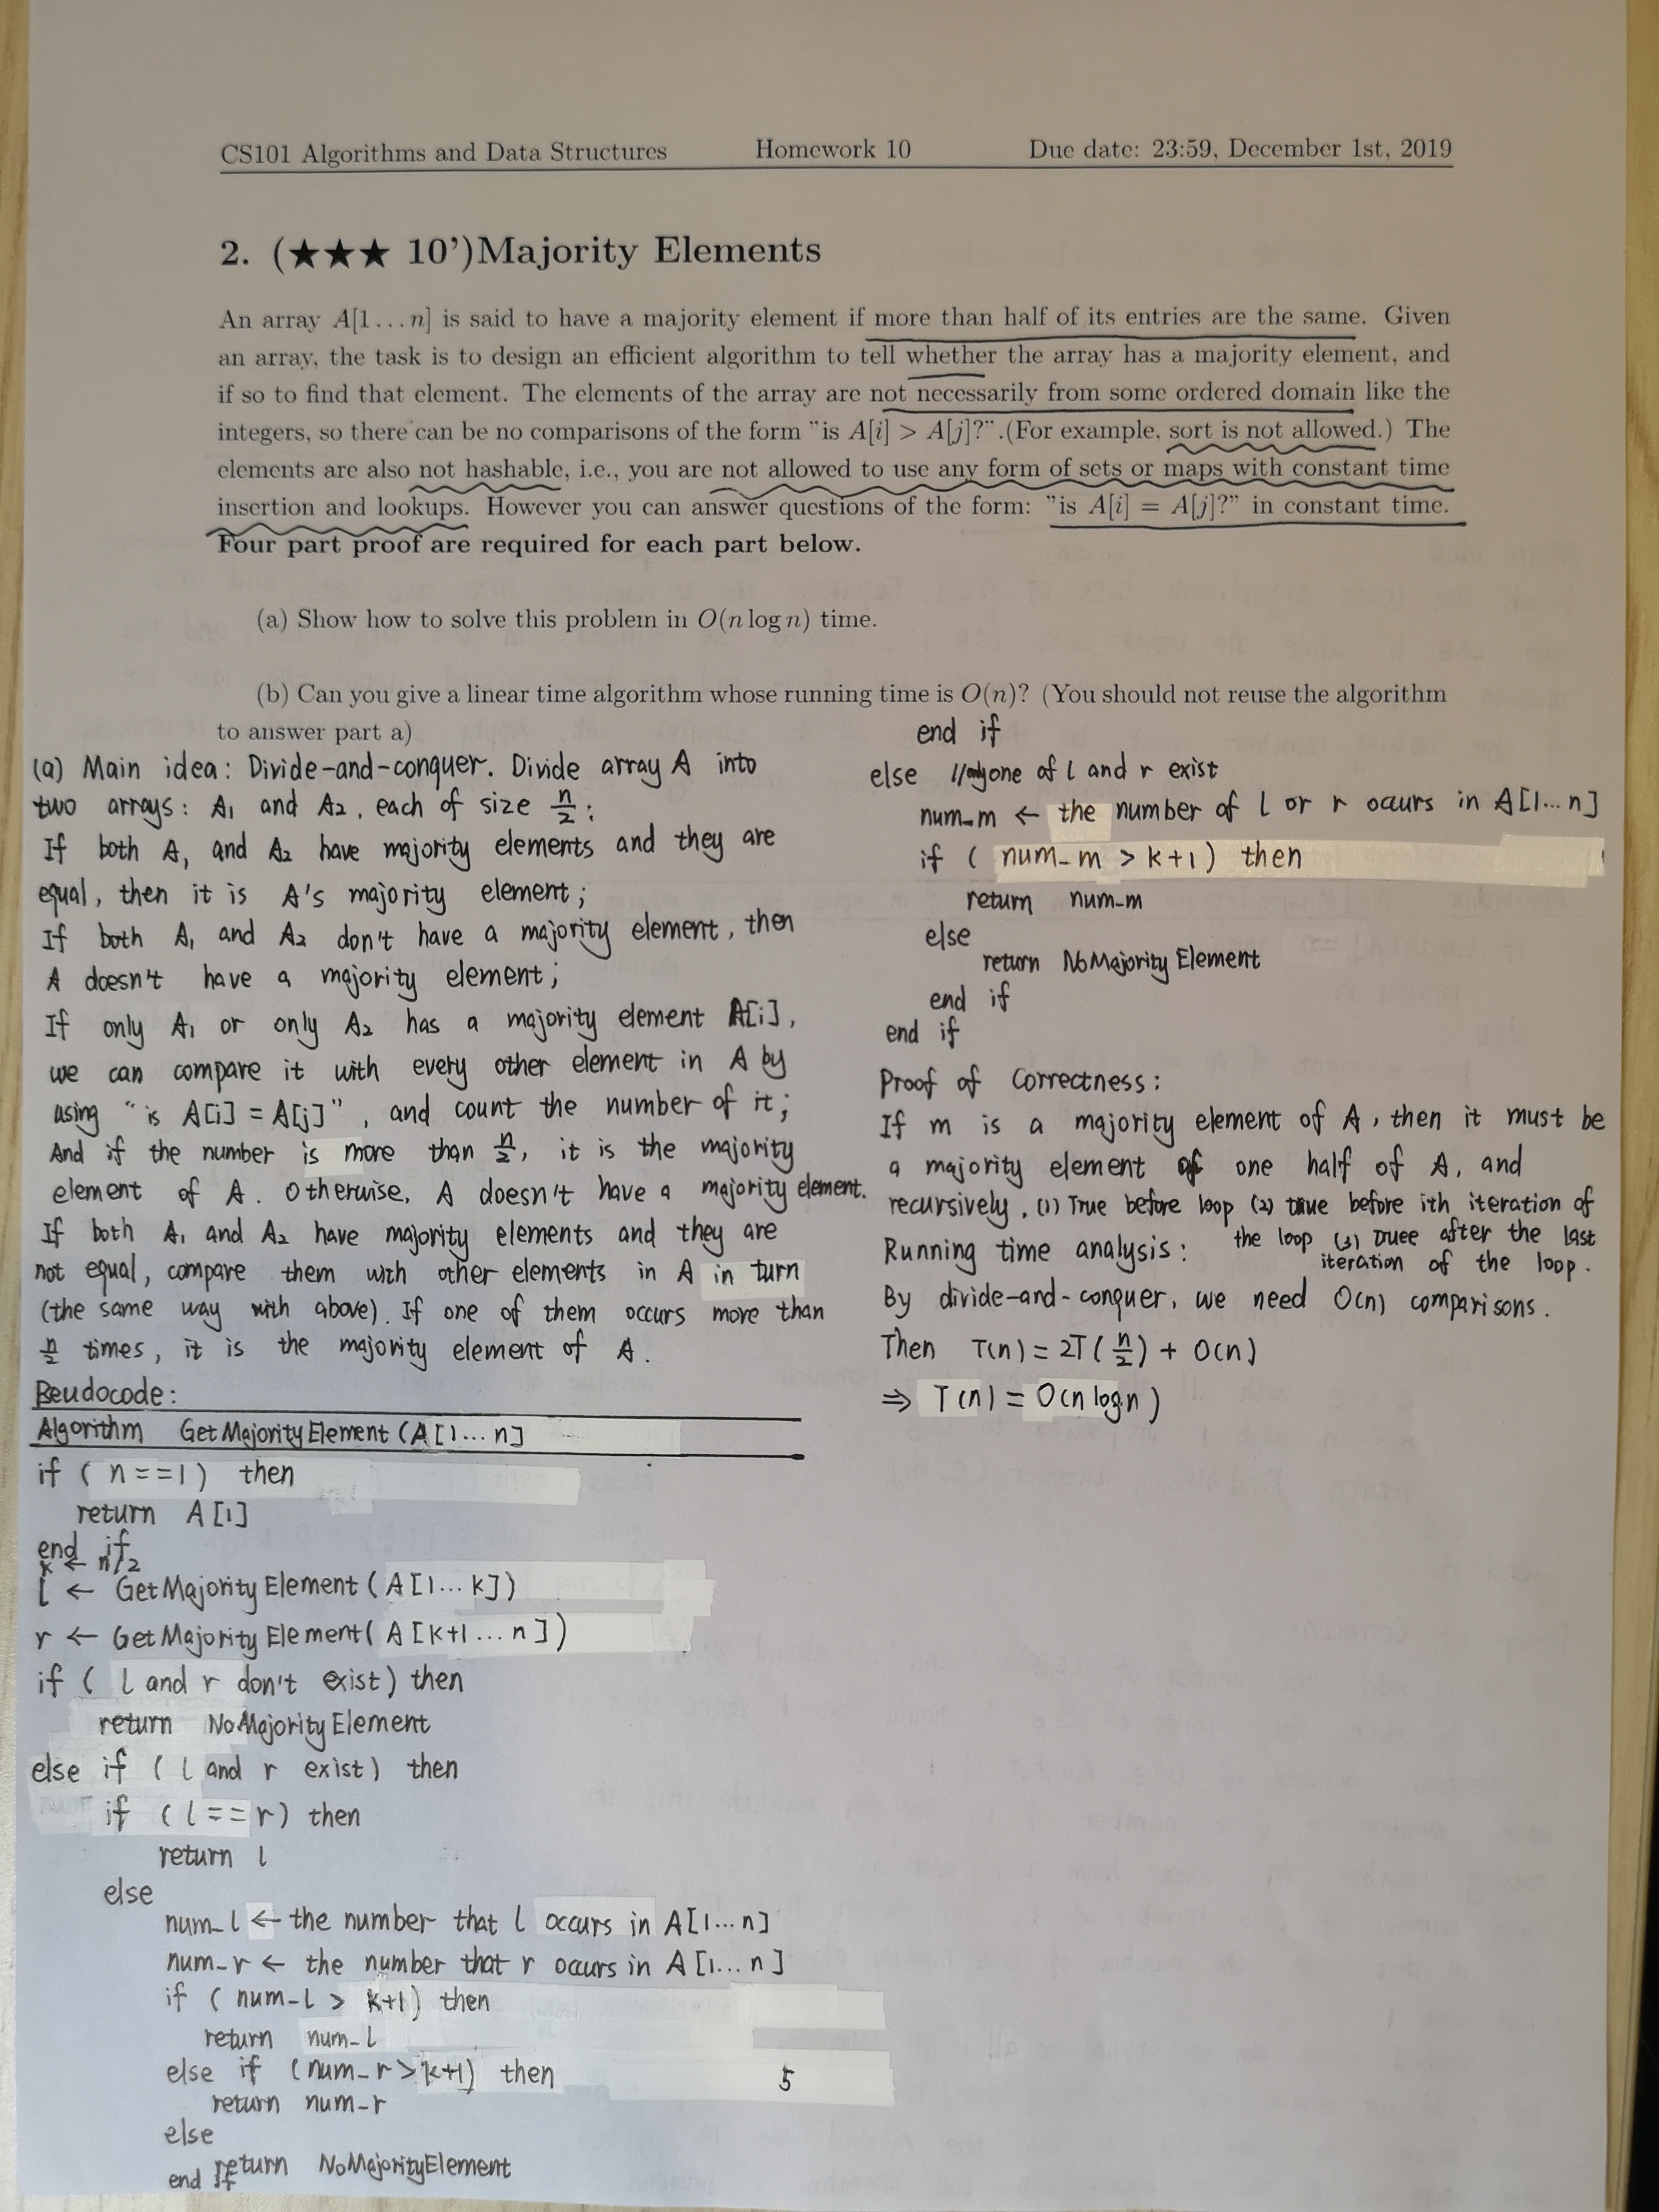 CS101 Algorithms and Data Structures Homework 10 Due date: 23:59, December 1st, 2019
2. (★★★ 10')Majority Elements
An array A[1...n] is said to have a majority element if more than half of its entries are the same. Given
an array, the task is to design an efficient algorithm to tell whether the array has a majority element, and
if so to find that element. The elements of the array are not necessarily from some ordered domain like the
integers, so there can be no comparisons of the form "is A[i] > A[j]?".(For example, sort is not allowed.) The
elements are also not hashable, i.e., you are not allowed to use any form of sets or maps with constant time
insertion and lookups. However you can answer questions of the form: "is A[i] = A[j]?" in constant time.
Four part proof are required for each part below.
(a) Show how to solve this problem in O(n log n) time.
(b) Can you give a linear time algorithm whose running time is O(n)? (You should not reuse the algorithm
to answer part a)
(a) Main idea: Divide-and-conquer. Divide array A into
two arrays: A1 and A2, each of size n/2:
If both A1 and A2 have majority elements and they are
equal, then it is A's majority element;
If both A1 and A2 don't have a majority element, then
A doesn't have a majority element;
If only A1 or only A2 has a majority element A[i],
we can compare it with every other element in A by
using "is A[i] = A[j]", and count the number of it;
And if the number is more than n/2, it is the majority
element of A. Otherwise, A doesn't have a majority element.
If both A1 and A2 have majority elements and they are
not equal, compare them with other elements in A in turn
(the same way with above). If one of them occurs more than
n/2 times, it is the majority element of A.
Peudocode:
Algorithm GetMajorityElement (A[1...n]
if (n==1) then
return A[1]
end if
k ← n/2
l ← GetMajorityElement (A[1...k])
r ← GetMajorityElement( A[k+1...n])
if ( l and r don't exist) then
return NoMajorityElement
else if ( l and r exist) then
if (l==r) then
return l
else
num_l ← the number that l occurs in A[1...n]
num_r ← the number that r occurs in A[1...n]
if ( num_l > k+1) then
return num_l
else if (num_r > k+1) then
return num_r
else
return NoMajorityElement
end if
end if
else // one of l and r exist
num_m ← the number of l or r occurs in A[1...n]
if ( num_m > k+1) then
return num_m
else
return NoMajorityElement
end if
end if
Proof of Correctness:
If m is a majority element of A, then it must be
a majority element of one half of A, and
recursively. (1) True before loop (2) true before ith iteration of
the loop (3) truee after the last
iteration of the loop.
Running time analysis:
By divide-and-conquer, we need O(n) comparisons.
Then T(n) = 2T(n/2) + O(n)
⇒ T(n) = O(n logn)
5